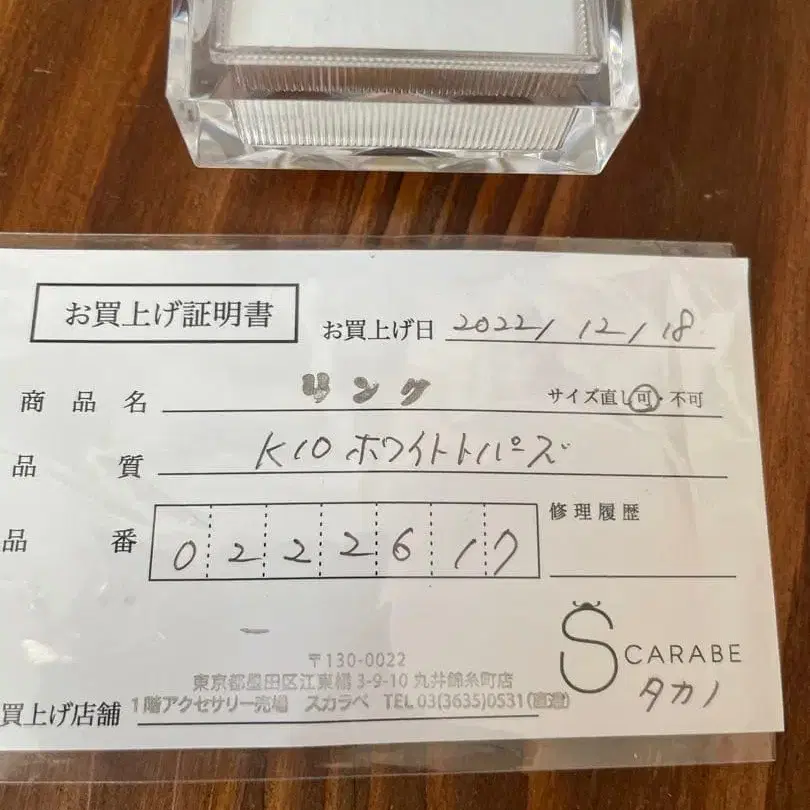 お買上げ証明書
お買上げ日 2022/12/18
商品名 リング
サイズ直し 可・不可
品質 K10ホワイトトパーズ
品番 0222617
修理履歴
SCARABE
タカノ
〒130-0022
東京都墨田区江東橋3-9-10 丸井錦糸町店
1階アクセサリー売場 スカラベ TEL 03(3635)0531(直通)
買上げ店舗